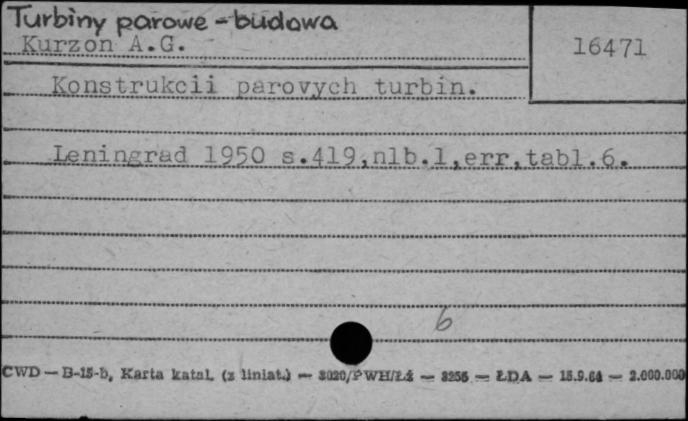 Turbiny parowe - budowa
Kurzon A.G.
16471
Konstrukcii parovych turbin.
Leningrad 1950 s.419,nlb.1,err,tabl.6.
6
CWD — B-15-b, Karta katal. (z liniat.) — 3020/PWH/Łż — 3256 — ŁDA — 15.9.64 — 2.000.000